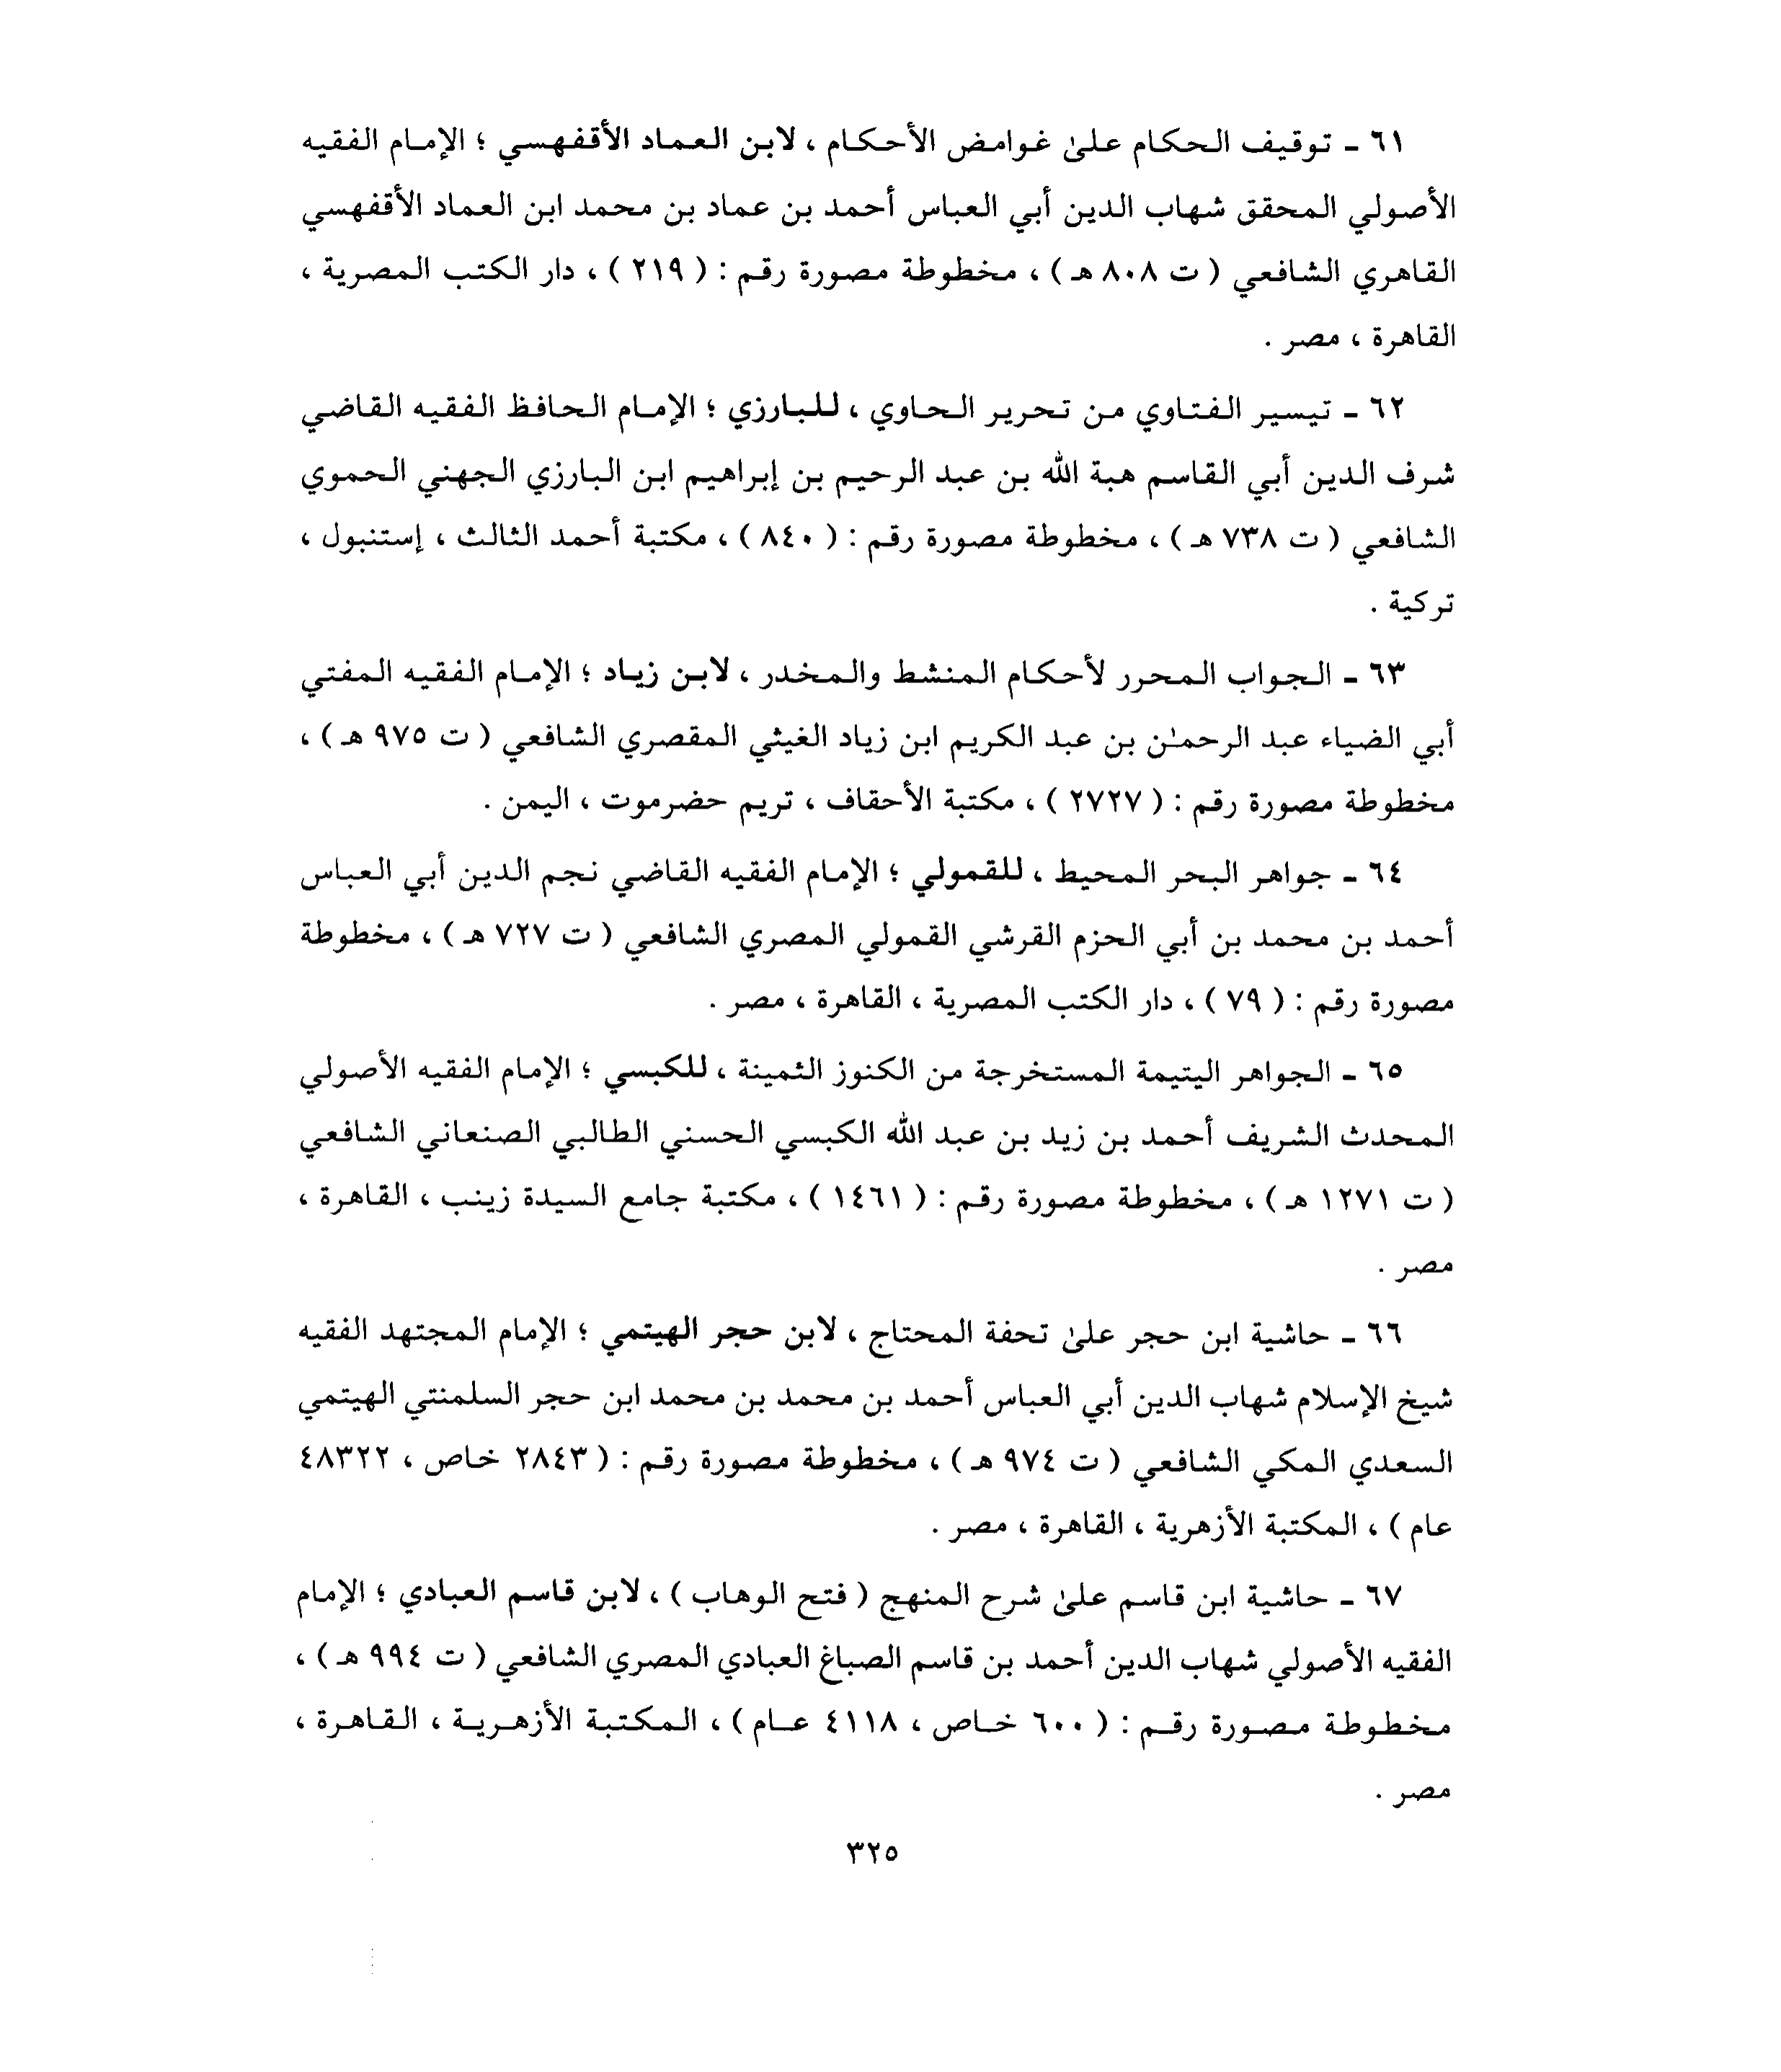 ٦١ ـ توقيف الحكام علىٰ غوامض الأحكام ، لابن العماد الأقفهسي ؛ الإمام الفقيه
الأصولي المحقق شهاب الدين أبي العباس أحمد بن عماد بن محمد ابن العماد الأقفهسي
القاهري الشافعي ( ت ٨٠٨ هـ ) ، مخطوطة مصورة رقم : ( ٢١٩ ) ، دار الكتب المصرية ،
القاهرة ، مصر .
٦٢ ـ تيسير الفتاوي من تحرير الحاوي ، للبارزي ؛ الإمام الحافظ الفقيه القاضي
شرف الدين أبي القاسم هبة الله بن عبد الرحيم بن إبراهيم ابن البارزي الجهني الحموي
الشافعي ( ت ٧٣٨ هـ ) ، مخطوطة مصورة رقم : ( ٨٤٠ ) ، مكتبة أحمد الثالث ، إستنبول ،
تركية .
٦٣ ـ الجواب المحرر لأحكام المنشط والمخدر ، لابن زياد ؛ الإمام الفقيه المفتي
أبي الضياء عبد الرحمـٰن بن عبد الكريم ابن زياد الغيثي المقصري الشافعي ( ت ٩٧٥ هـ ) ،
مخطوطة مصورة رقم : ( ٢٧٢٧ ) ، مكتبة الأحقاف ، تريم حضرموت ، اليمن .
٦٤ ـ جواهر البحر المحيط ، للقمولي ؛ الإمام الفقيه القاضي نجم الدين أبي العباس
أحمد بن محمد بن أبي الحزم القرشي القمولي المصري الشافعي ( ت ٧٢٧ هـ ) ، مخطوطة
مصورة رقم : ( ٧٩ ) ، دار الكتب المصرية ، القاهرة ، مصر .
٦٥ ـ الجواهر اليتيمة المستخرجة من الكنوز الثمينة ، للكبسي ؛ الإمام الفقيه الأصولي
المحدث الشريف أحمد بن زيد بن عبد الله الكبسي الحسني الطالبي الصنعاني الشافعي
( ت ١٢٧١ هـ ) ، مخطوطة مصورة رقم : ( ١٤٦١ ) ، مكتبة جامع السيدة زينب ، القاهرة ،
مصر .
٦٦ ـ حاشية ابن حجر علىٰ تحفة المحتاج ، لابن حجر الهيتمي ؛ الإمام المجتهد الفقيه
شيخ الإسلام شهاب الدين أبي العباس أحمد بن محمد بن محمد ابن حجر السلمنتي الهيتمي
السعدي المكي الشافعي ( ت ٩٧٤ هـ ) ، مخطوطة مصورة رقم : ( ٢٨٤٣ خاص ، ٤٨٣٢٢
عام ) ، المكتبة الأزهرية ، القاهرة ، مصر .
٦٧ ـ حاشية ابن قاسم علىٰ شرح المنهج ( فتح الوهاب ) ، لابن قاسم العبادي ؛ الإمام
الفقيه الأصولي شهاب الدين أحمد بن قاسم الصباغ العبادي المصري الشافعي ( ت ٩٩٤ هـ ) ،
مخطوطة مصورة رقم : ( ٦٠٠ خاص ، ٤١١٨ عام ) ، المكتبة الأزهرية ، القاهرة ،
مصر .
٣٢٥